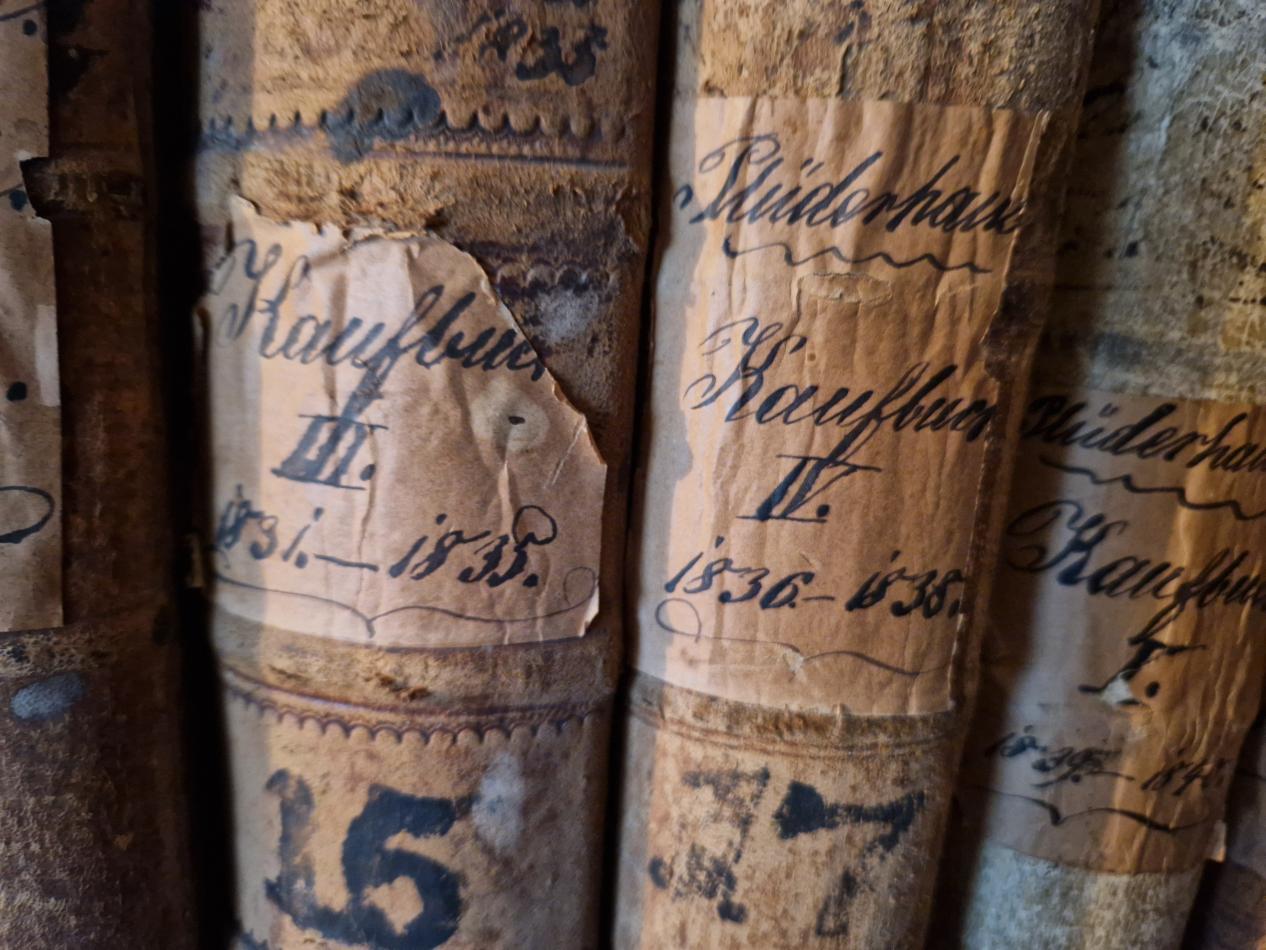 1835
Kaufbuc
III.
1831.— 1835.
15
Plüderhaus
Kaufbuch
IV.
1836.— 1838.
17
Plüderhau
Kaufbu
1839.— 184